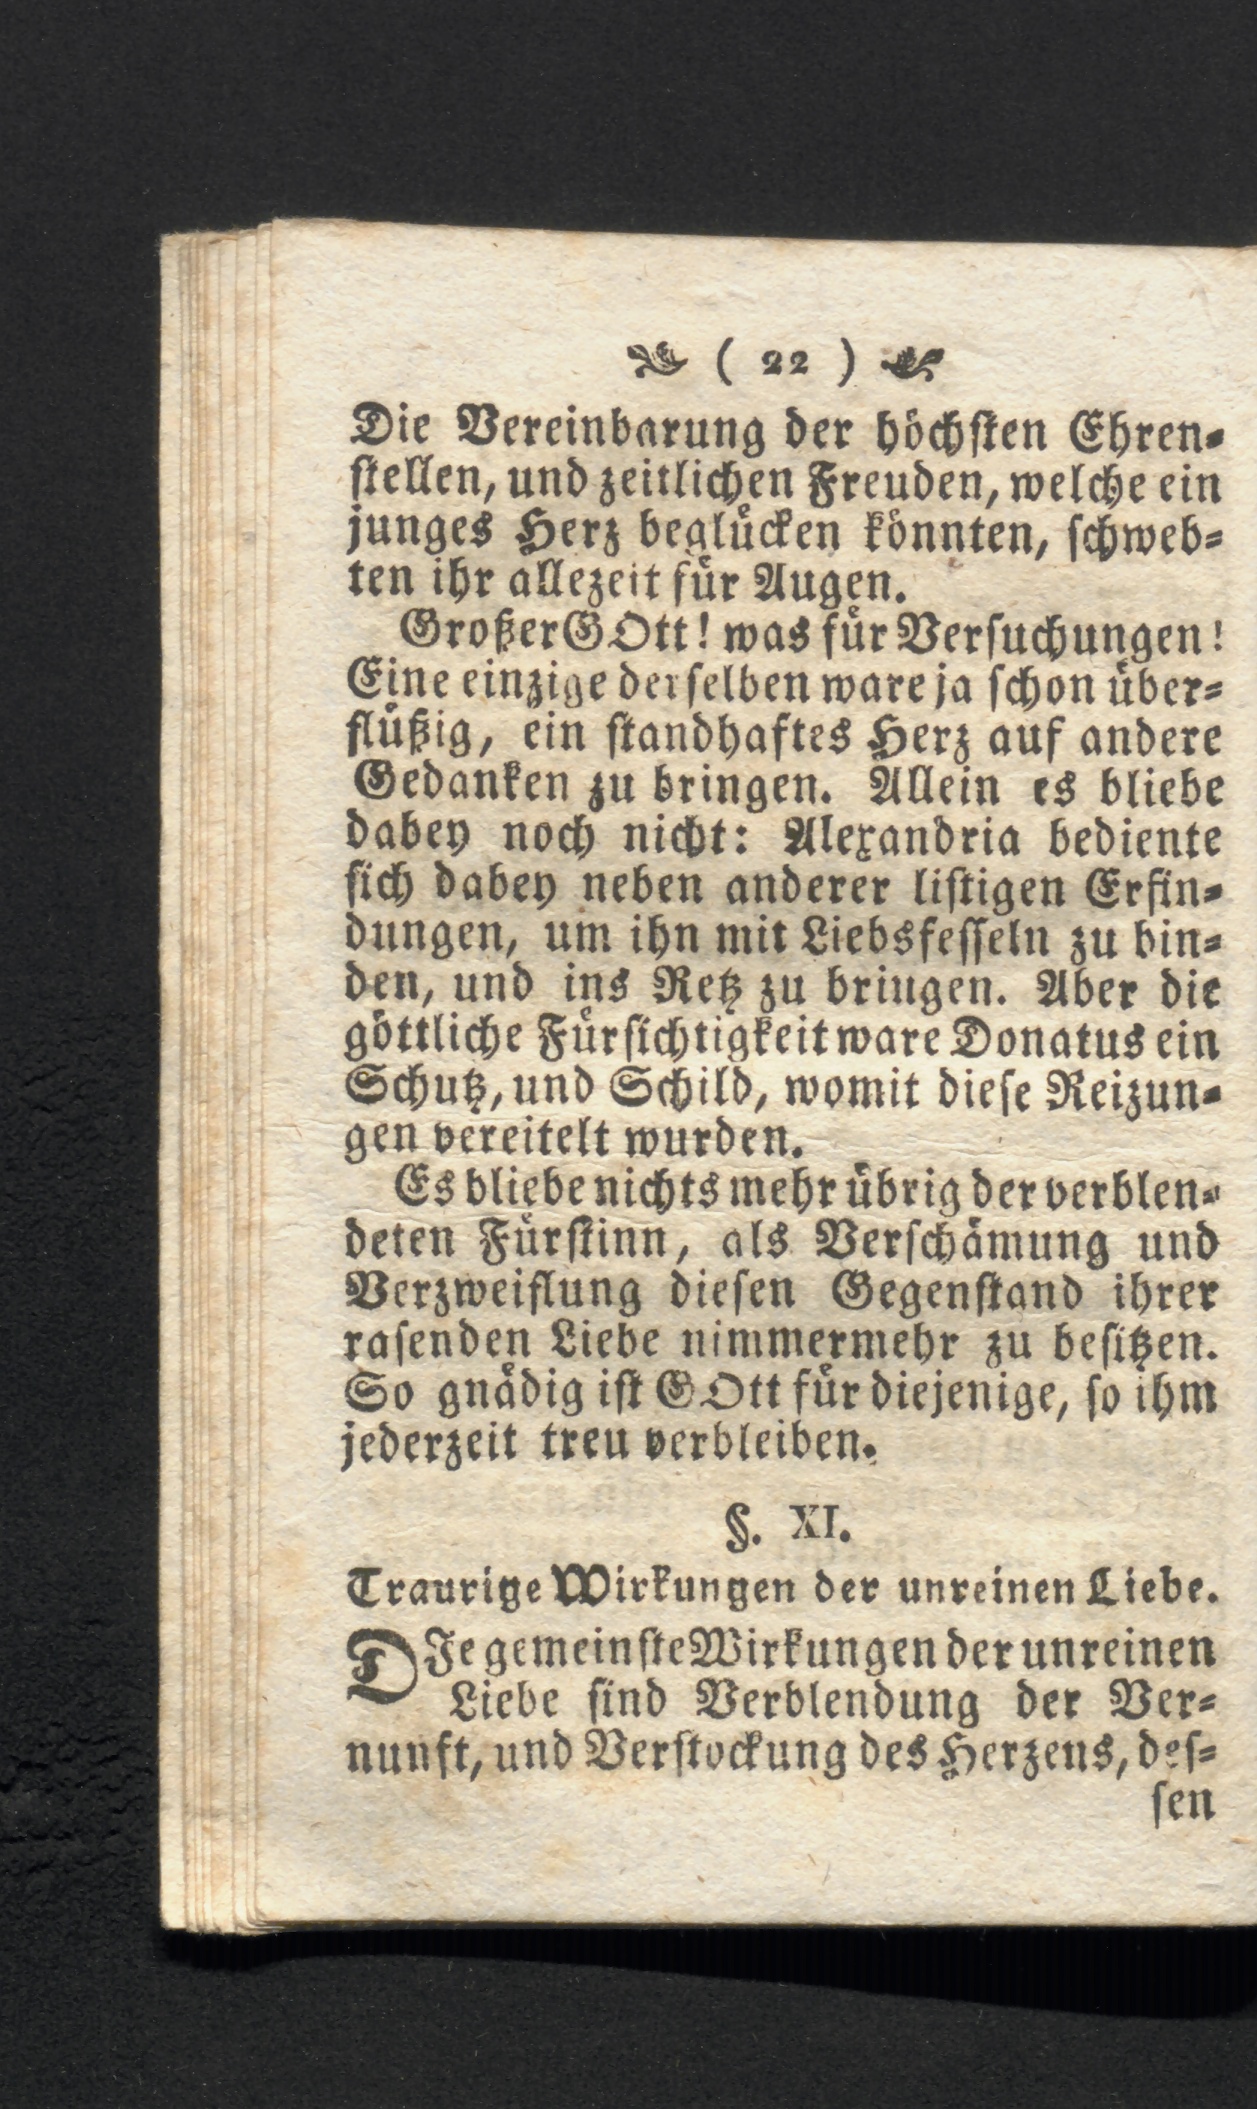 ( 22 )
Die Vereinbarung der höchſten Ehren⸗
ſtellen, und zeitlichen Freuden, welche ein
junges Herz beglücken könnten, ſchweb⸗
ten ihr allezeit für Augen.
Großer GOtt! was für Verſuchungen!
Eine einzige derſelben ware ja ſchon über⸗
flüßig, ein ſtandhaftes Herz auf andere
Gedanken zu bringen. Allein es bliebe
dabey noch nicht: Alexandria bediente
ſich dabey neben anderer liſtigen Erfin⸗
dungen, um ihn mit Liebsfeſſeln zu bin⸗
den, und ins Retz zu bringen. Aber die
göttliche Fürſichtigkeit ware Donatus ein
Schutz, und Schild, womit dieſe Reizun⸗
gen vereitelt wurden.
Es bliebe nichts mehr übrig der verblen⸗
deten Fürſtinn, als Verſchämung und
Verzweiflung dieſen Gegenſtand ihrer
raſenden Liebe nimmermehr zu beſitzen.
So gnädig iſt GOtt für diejenige, ſo ihm
jederzeit treu verbleiben.
§. XI.
Traurige Wirkungen der unreinen Liebe.
DIe gemeinſte Wirkungen der unreinen
Liebe ſind Verblendung der Ver⸗
nunft, und Verſtockung des Herzens, deſ⸗
ſen